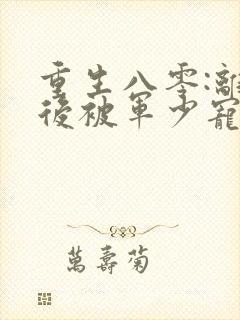 重生八零:離
後被軍少寵
萬壽菊